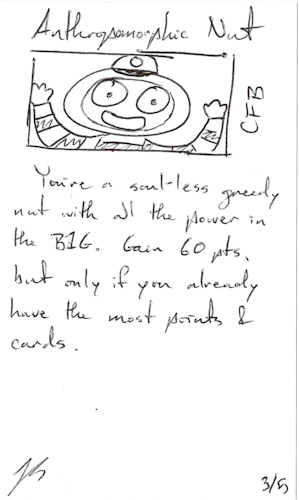 Anthropomorphic Nut
CFB
You're a soul-less greedy
nut with all the power in
the B1G. Gain 60 pts,
but only if you already
have the most points &
cards.
3/5